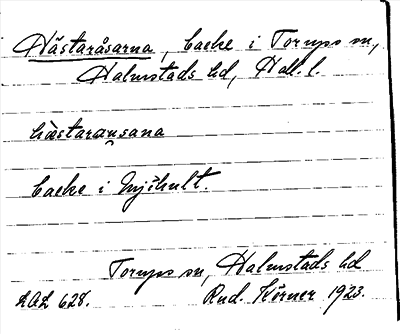 Hästaråsarna, backe i Torups sn,
Halmstads hd, Hall. l.
hästaraụsana
backe i Nyhult.
Torups sn, Halmstads hd
LAL 628. Rud. Körner 1923.